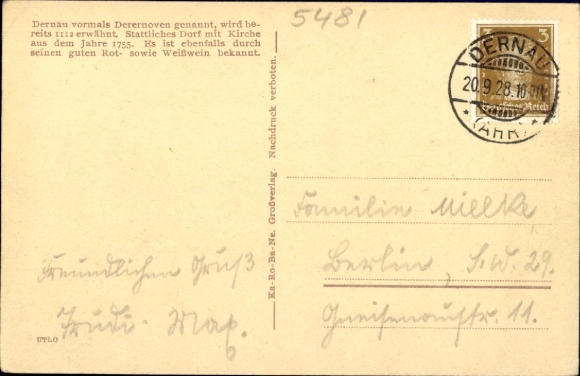 Dernau vormals Derernoven genannt, wird be-
reits 1112 erwähnt. Stattliches Dorf mit Kirche
aus dem Jahre 1755. Es ist ebenfalls durch
seinen guten Rot- sowie Weißwein bekannt.
5481
3 3
Deutsches Reich
DERNAU
20.9.28.10-11
* (AHR) *
Ka-Ro-Ba-Ne. Großverlag. Nachdruck verboten.
Familie Mielke
Berlin, S.W. 29.
Gneisenaustr. 11.
Freundlichen Gruß
Trudi. Max.
UTLO